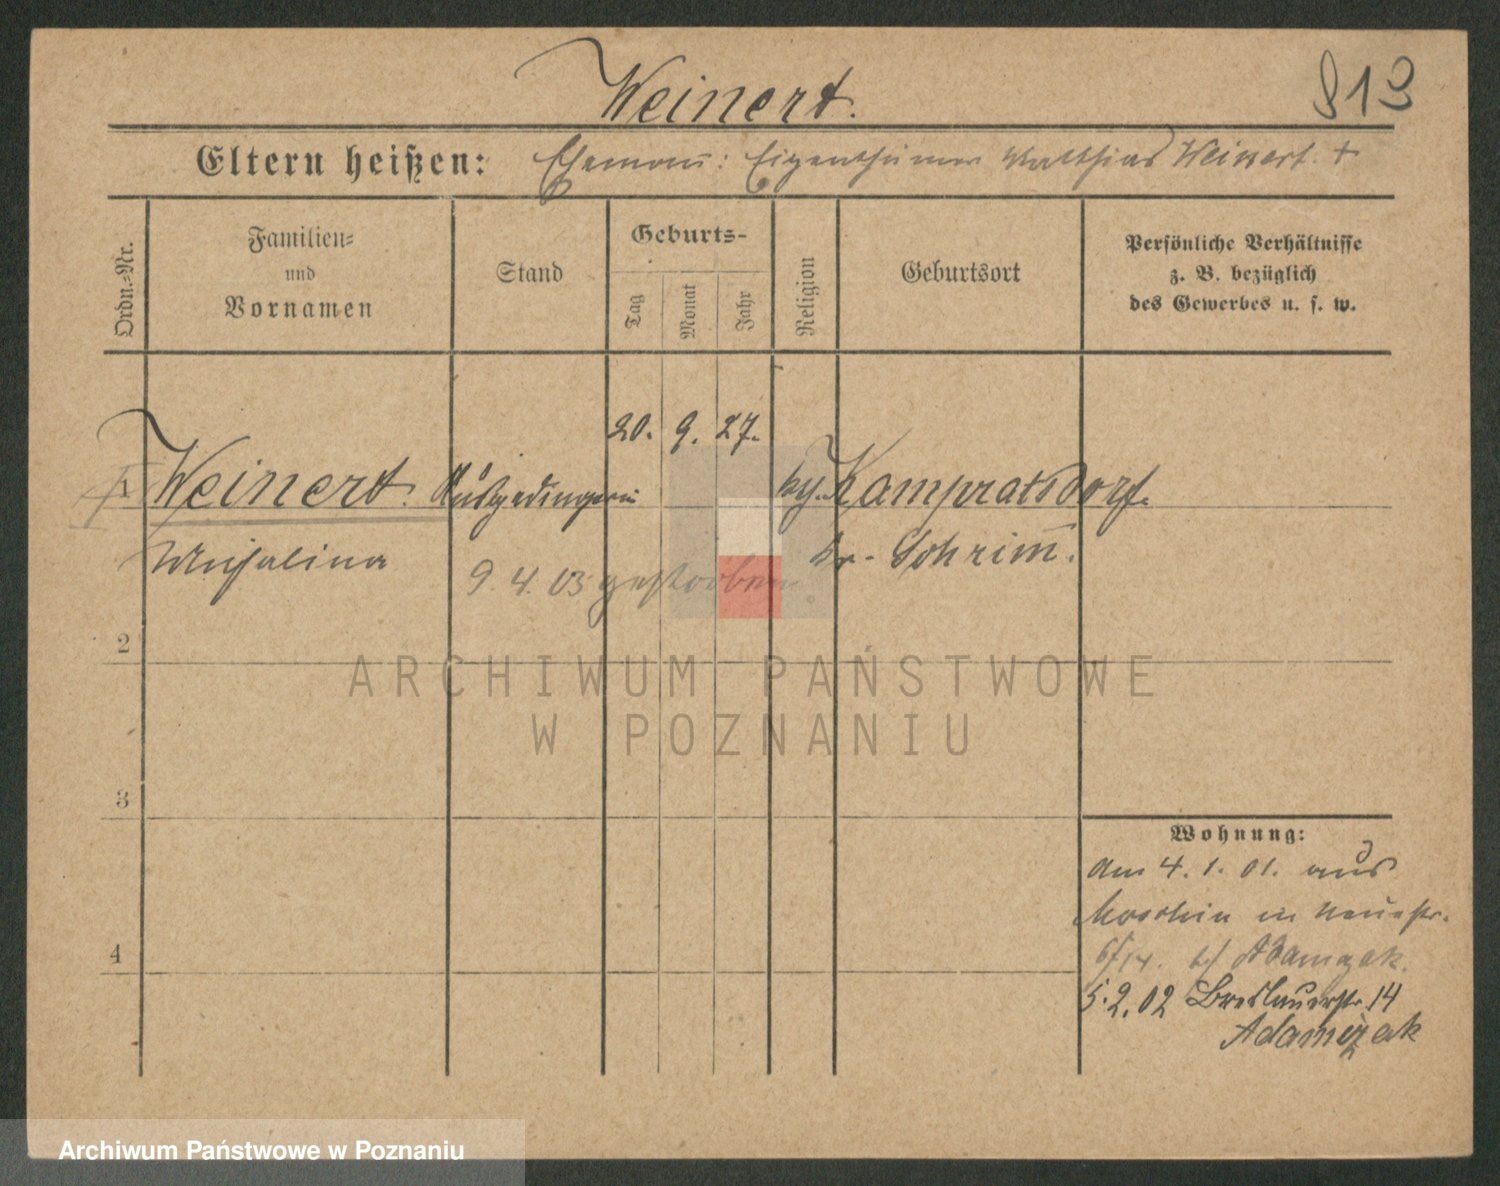 Weinert.
813
Eltern heißen: Ehemann: Eigenthümer Matthias Weinert. +
Ordn.-Nr.
Familien-
und
Vornamen
Stand
Geburts-
Tag
Monat
Jahr
Religion
Geburtsort
Persönliche Verhältnisse
z. B. bezüglich
des Gewerbes u. s. w.
20. 9. 27.
1 Weinert. Ausgedingerin Kampratsdorf.
Kr. Schrimm.
9. 4. 03 gestorben
2
3
4
ARCHIWUM PAŃSTWOWE
W POZNANIU
Wohnung:
am 4. 1. 01. aus
Moschin in Neuestr.
b/ Adamczak.
5. 2. 02 Breslauerstr. 14
Adamczak
Archiwum Państwowe w Poznaniu